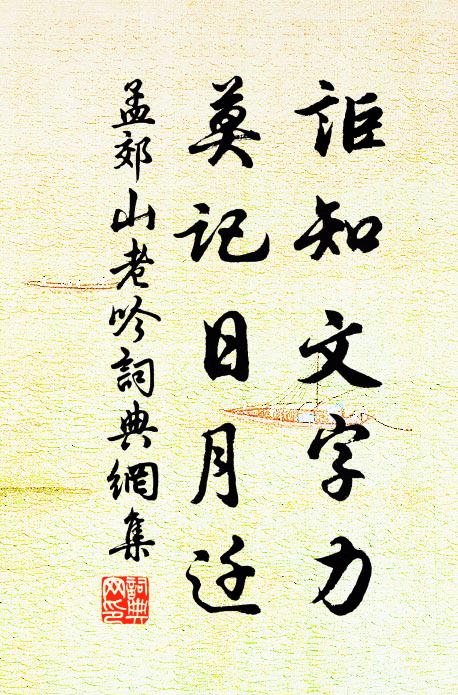 詎知文字力
莫记日月迁
孟郊山老吟詞典網集
詞典网印